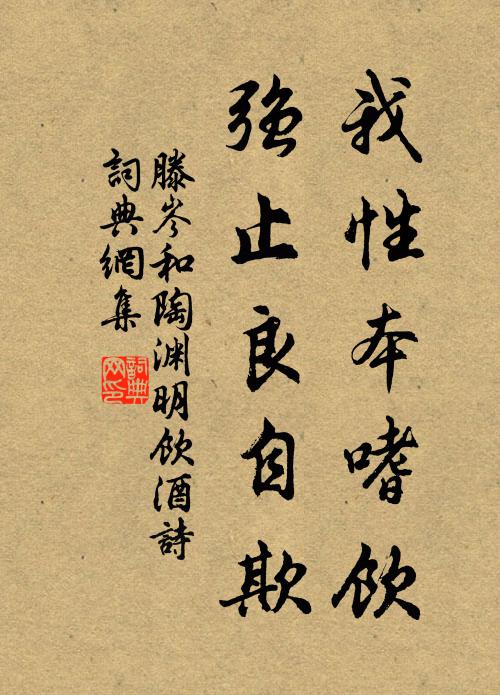 我性本嗜飲
強止良自欺
滕岑和陶渊明飲酒詩
詞典網集
詞典
网印